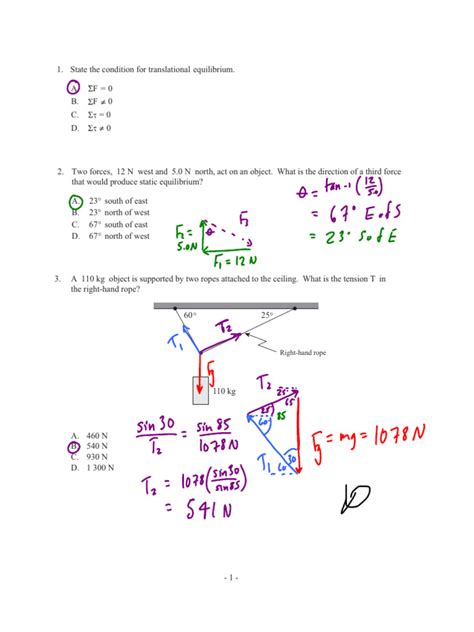 1. State the condition for translational equilibrium.
A. ΣF = 0
B. ΣF ≠ 0
C. Στ = 0
D. Στ ≠ 0
2. Two forces, 12 N west and 5.0 N north, act on an object. What is the direction of a third force
that would produce static equilibrium?
A. 23° south of east
B. 23° north of west
C. 67° south of east
D. 67° north of west
θ = tan⁻¹(12/5.0)
= 67° E of S
= 23° S of E
F₂ =
5.0N
θ
F₃
F₁ = 12 N
3. A 110 kg object is supported by two ropes attached to the ceiling. What is the tension T in
the right-hand rope?
60°
25°
T₁
T₂
Right-hand rope
Fg
110 kg
A. 460 N
B. 540 N
C. 930 N
D. 1 300 N
sin 30/T₂ = sin 85/1078N
T₂ = 1078(sin30/sin85)
= 541 N
T₂
25
65
25
85
60
T₁
60
30
Fg = mg = 1078N
- 1 -